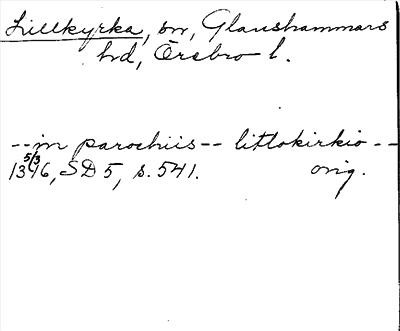 Lillkyrka, sn, Glanshammars
hd, Örebro l.
-- in parochiis -- litlokirkio --
13 5/3 46, SD 5, s. 541. orig.